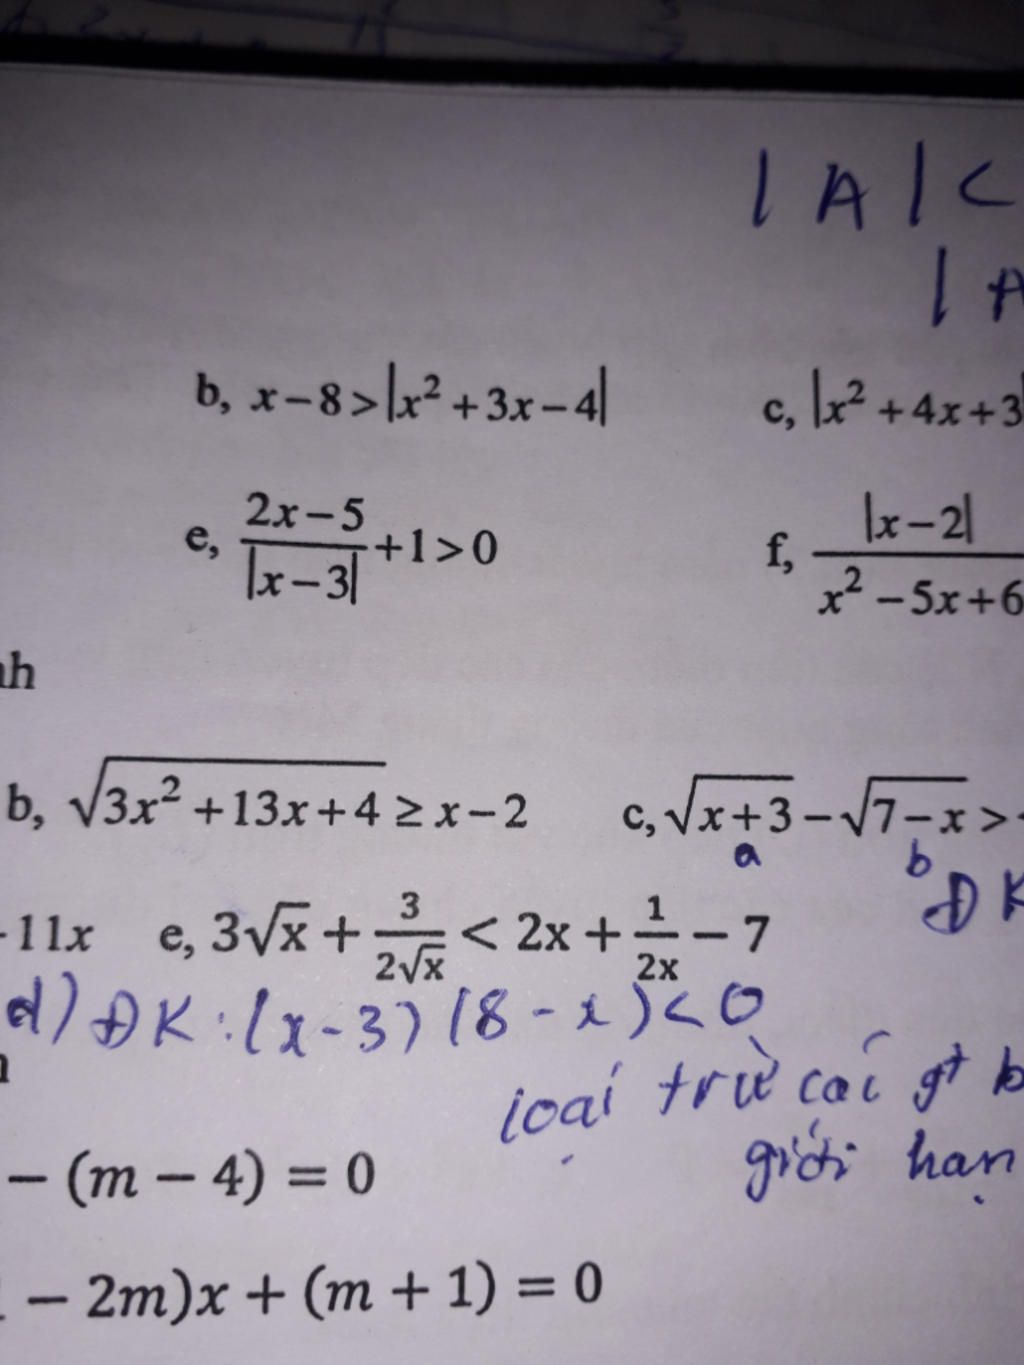 |A| <
|A
b, x-8>|x²+3x-4|
c, |x²+4x+3|
e, \frac{2x-5}{|x-3|}+1>0
f, \frac{|x-2|}{x²-5x+6}
b, √(3x²+13x+4) ≥ x-2
c, √(x+3) - √(7-x) >
a
b
ĐK
-11x
e, 3√x + \frac{3}{2√x} < 2x + \frac{1}{2x} - 7
d) ĐK: (x-3)(8-x)<0
loại trừ cái gt
giới hạn
- (m - 4) = 0
- 2m)x + (m + 1) = 0